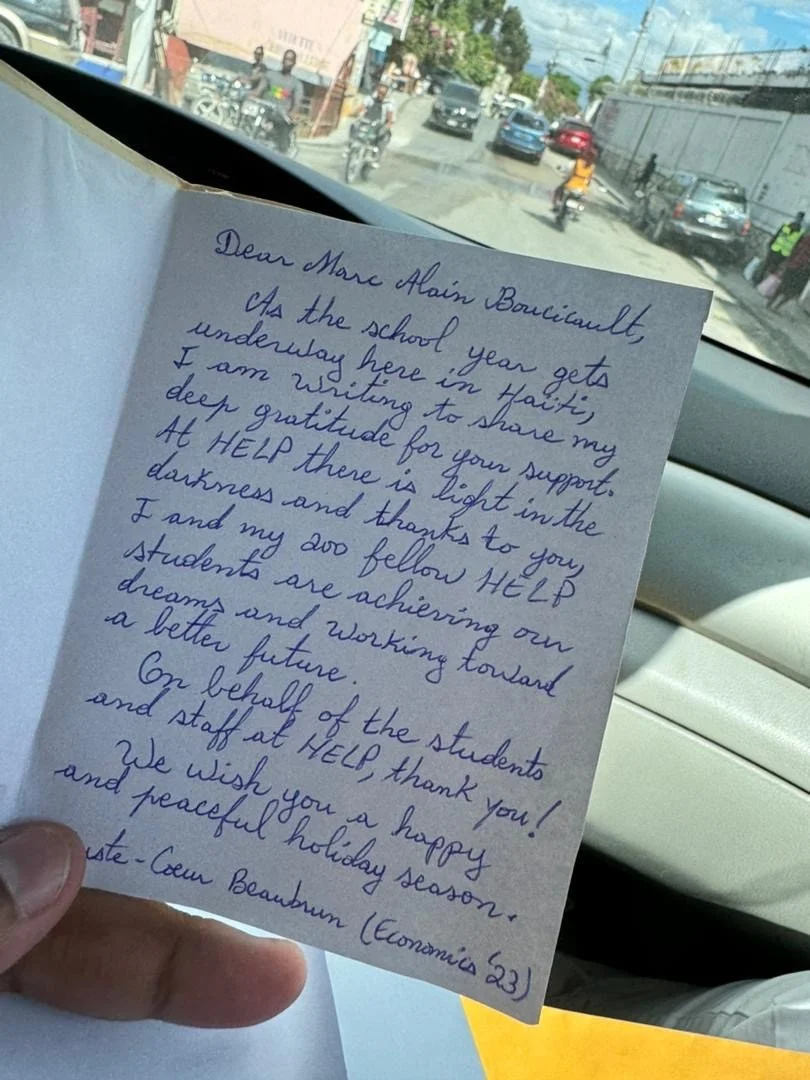 Dear Marc Alain Boucicault,
As the school year gets
underway here in Haïti,
I am writing to share my
deep gratitude for your support.
At HELP there is light in the
darkness and thanks to you,
I and my 200 fellow HELP
students are achieving our
dreams and working toward
a better future.
On behalf of the students
and staff at HELP, thank you!
We wish you a happy
and peaceful holiday season.
uste-Cœur Beaubrun (Economics '23)